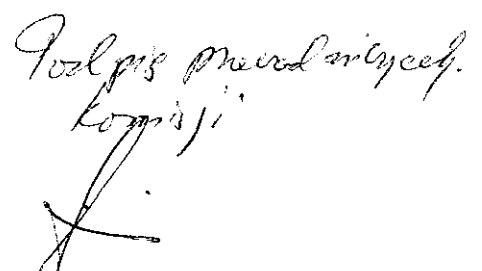 Podpis przewodniczącej
Komisji